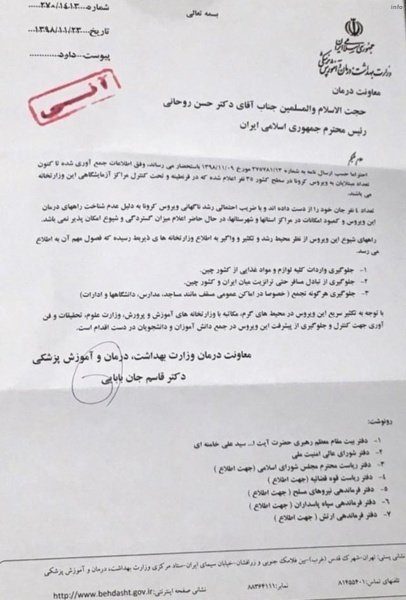 بسمه تعالی
شماره ۲۷۰/۱۴۱۳
تاریخ ۱۳۹۸/۱۱/۲۳
پیوست دارد
آنی
جمهوری اسلامی ایران
وزارت بهداشت، درمان و آموزش پزشکی
معاونت درمان
حجت الاسلام والمسلمین جناب آقای دکتر حسن روحانی
رئیس محترم جمهوری اسلامی ایران
احتراما حسب ارسال نامه به شماره ۲۷۵۲۸۱/۱۳ مورخ ۱۳۹۸/۱۱/۰۹ باستحضار می رساند، وفق اطلاعات جمع آوری شده تا کنون
تعداد مبتلایان به ویروس کرونا در سطح کشور ۳۵ نفر اعلام شده که در قرنطینه و تحت کنترل مراکز آزمایشگاهی این وزارتخانه
می باشند.
تعداد نفر جان خود را از دست داده اند و با ضریب احتمالی رشد ناگهانی ویروس کرونا به دلیل عدم شناخت راههای درمان
این ویروس و کمبود امکانات در مراکز استانها و شهرستانها، در حال حاضر اعلام میزان گستردگی و شیوع امکان پذیر نمی باشد.
راههای شیوع این ویروس از نظر محیط رشد و تکثیر و واگیر به اطلاع وزارتخانه های ذیربط رسیده که فصول مهم آن به اطلاع
می رسد
۱- جلوگیری واردات کلیه لوازم و مواد غذایی از کشور چین.
۲- جلوگیری از تبادل مسافر حتی ترانزیت میان ایران و کشور چین.
۳- جلوگیری هرگونه تجمع (خصوصا در اماکن عمومی مسقف مانند مساجد، مدارس، دانشگاهها و ادارات)
با توجه به تکثیر سریع این ویروس در محیط های گرم، مکاتبه با وزارتخانه های آموزش و پرورش، وزارت علوم، تحقیقات و فن
آوری جهت کنترل و جلوگیری از پیشرفت این ویروس در جمع دانش آموزان و دانشجویان در دست اقدام است.
معاونت درمان وزارت بهداشت، درمان و آموزش پزشکی
دکتر قاسم جان بابایی
رونوشت:
۱- دفتر بیت مقام معظم رهبری حضرت آیت ا... سید علی خامنه ای
۲- دفتر شورای عالی امنیت ملی
۳- دفتر ریاست محترم مجلس شورای اسلامی (جهت اطلاع)
۴- دفتر ریاست قوه قضائیه (جهت اطلاع)
۵- دفتر فرماندهی نیروهای مسلح (جهت اطلاع)
۶- دفتر فرماندهی سپاه پاسداران (جهت اطلاع)
۷- دفتر فرماندهی ارتش (جهت اطلاع)
نشانی پستی: تهران-شهرک قدس (غرب)-بین فلامک جنوبی و زرافشان-خیابان سیمای ایران-ستاد مرکزی وزارت بهداشت، درمان و آموزش پزشکی
تلفنهای تماس: ۸۱۴۵۵۴۰۱ نمابر: ۸۸۳۶۴۱۱۱ نشانی صفحه اینترنتی: http://www.behdasht.gov.ir
info